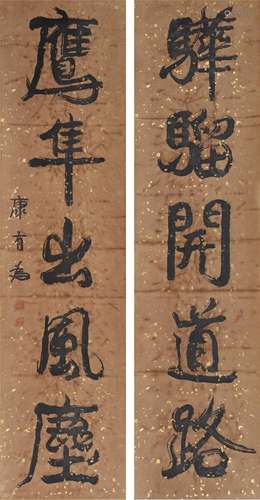 驊騮開道路
鷹隼出風塵
康有為